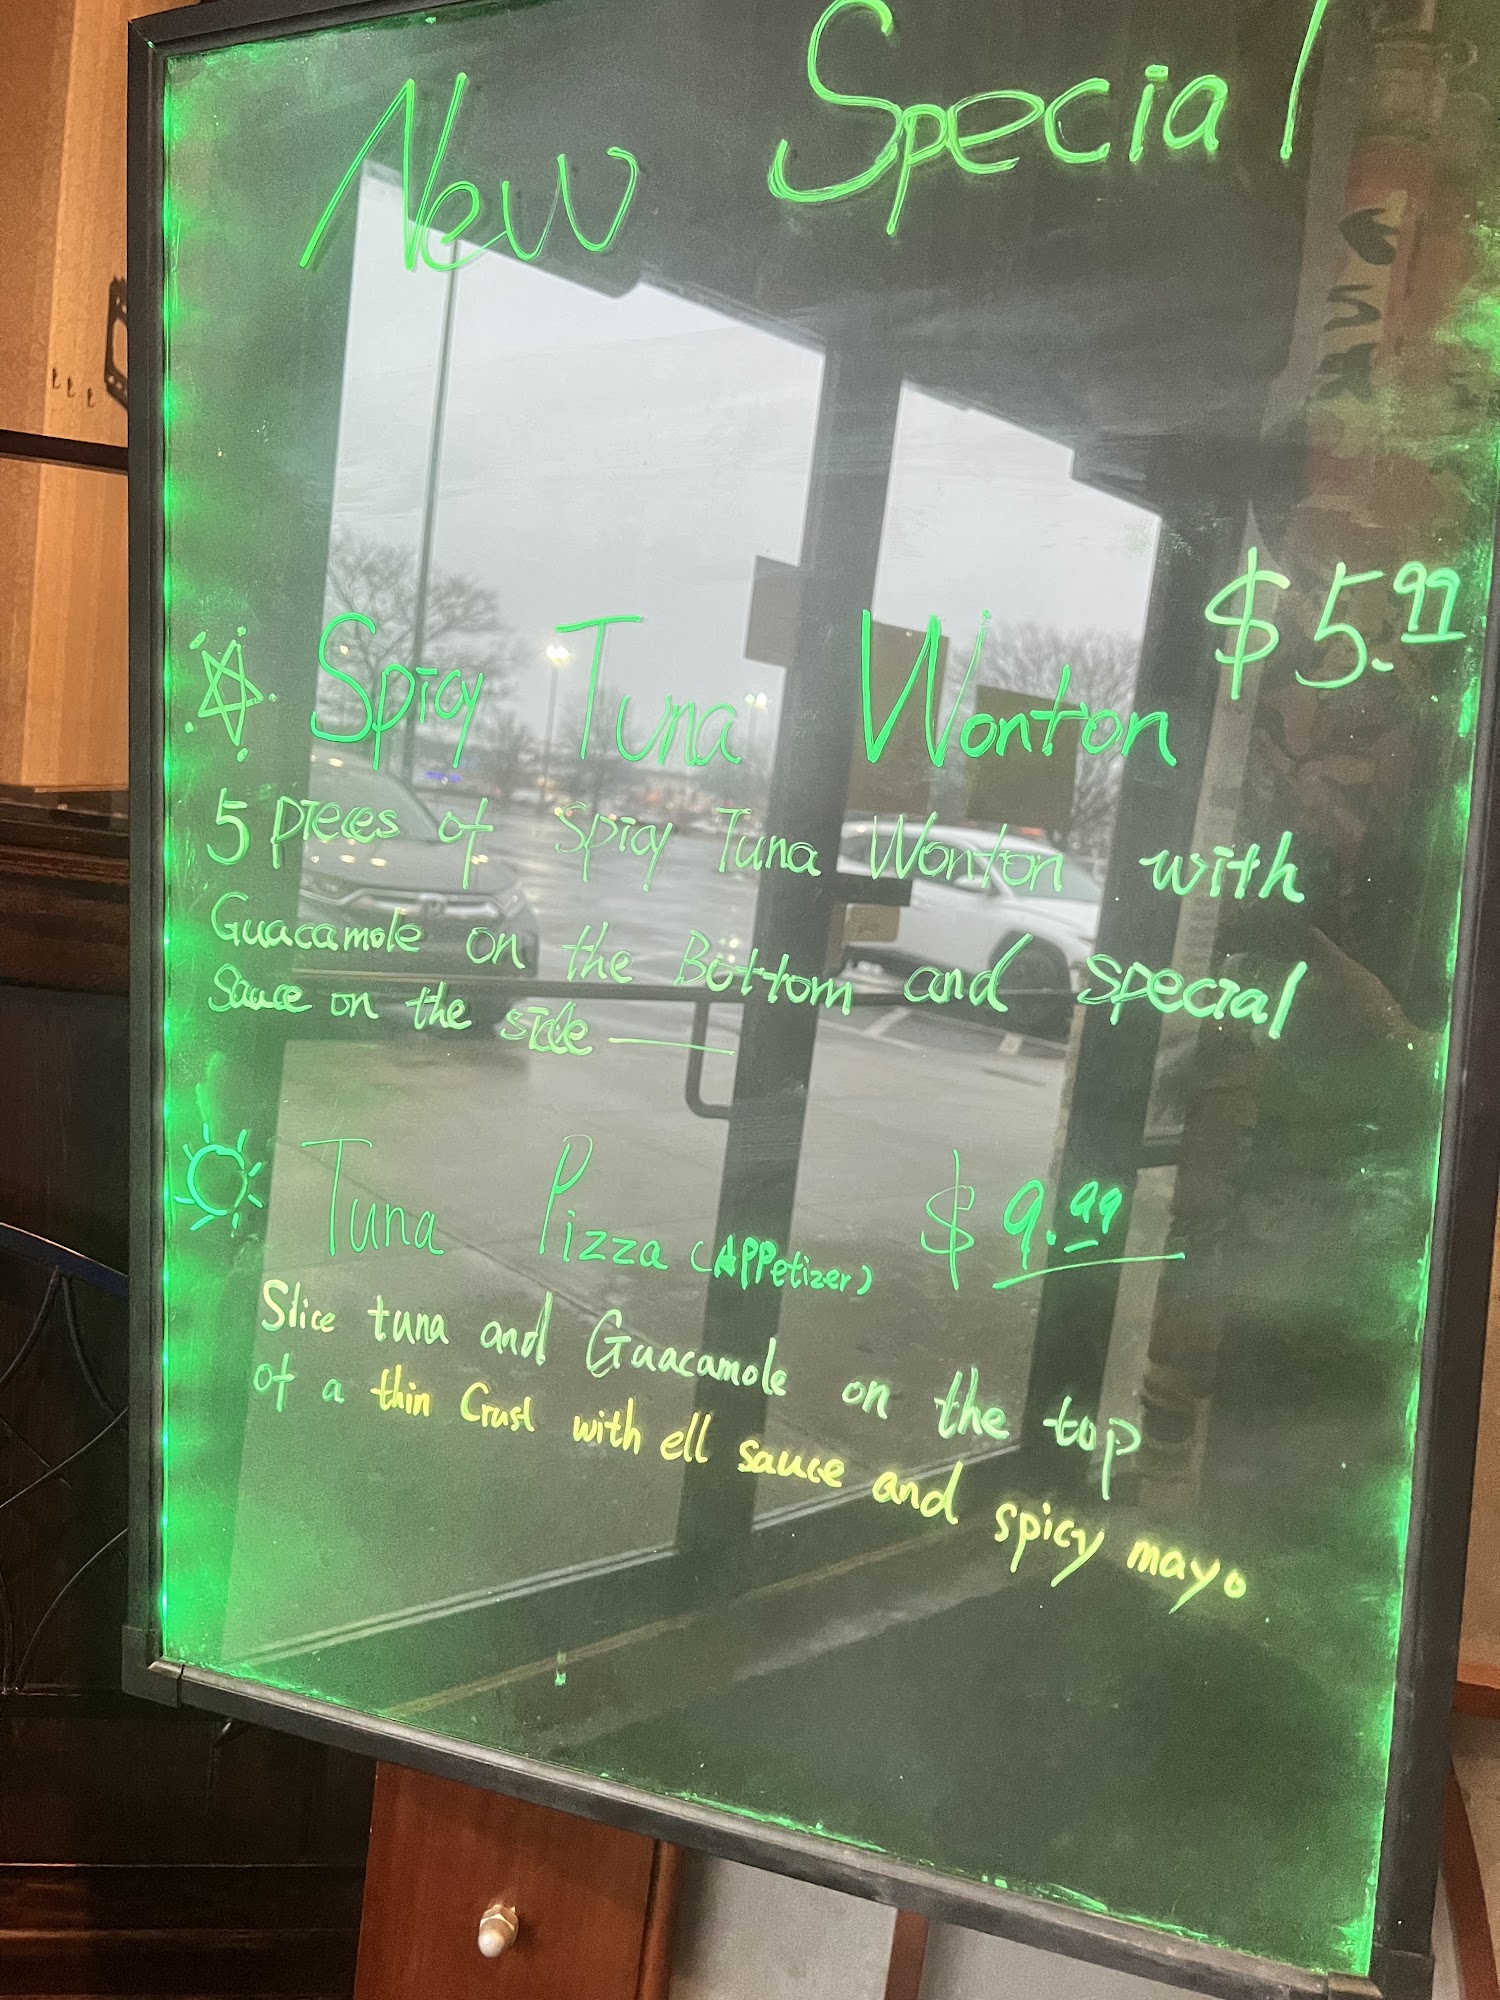 New Special
$5.99
Spicy Tuna Wonton
5 pieces of Spicy Tuna Wonton with
Guacamole on the Bottom and special
Sauce on the side
Tuna Pizza (APPetizer) $9.99
Slice tuna and Guacamole on the top
of a thin Crust with ell sauce and spicy mayo